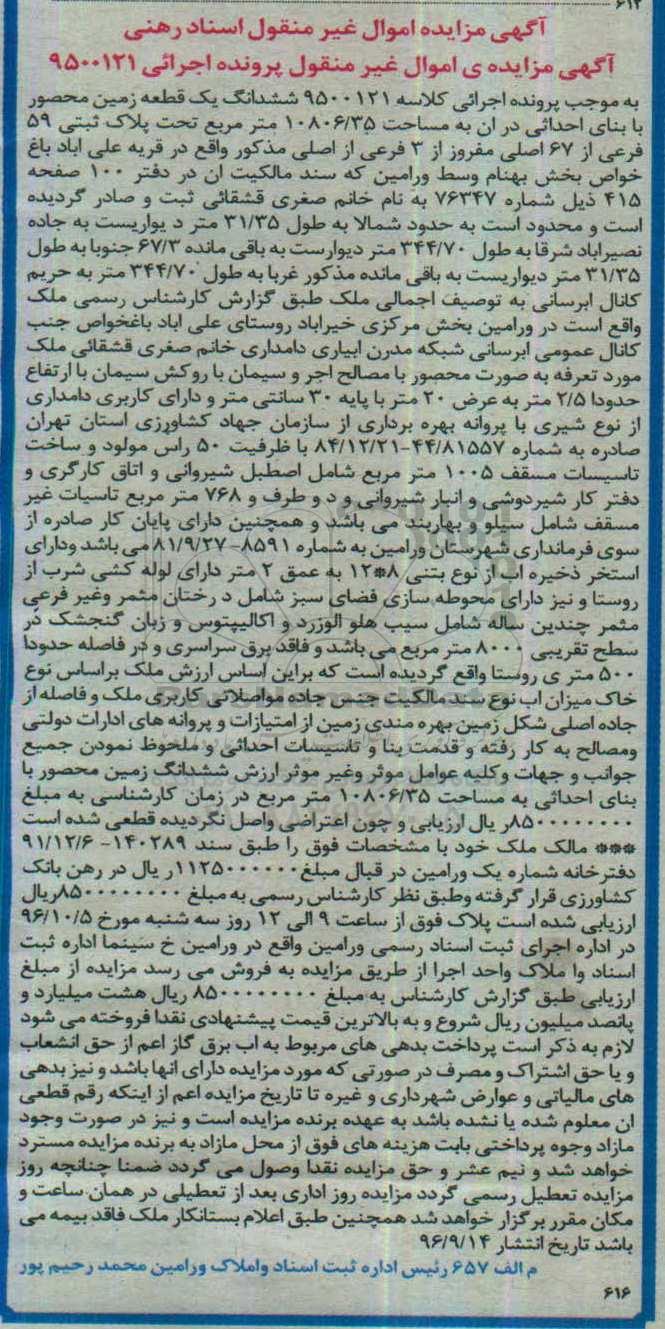 ۶۱۲
آگهی مزایده اموال غیر منقول اسناد رهنی
آگهی مزایده ی اموال غیر منقول پرونده اجرائی ۹۵۰۰۱۲۱
به موجب پرونده اجرائی کلاسه ۹۵۰۰۱۲۱ ششدانگ یک قطعه زمین محصور
با بنای احداثی در ان به مساحت ۱۰۸۰۶/۳۵ متر مربع تحت پلاک ثبتی ۵۹
فرعی از ۶۷ اصلی مفروز از ۳ فرعی از اصلی مذکور واقع در قریه علی اباد باغ
خواص بخش بهنام وسط ورامین که سند مالکیت ان در دفتر ۱۰۰ صفحه
۴۱۵ ذیل شماره ۷۶۳۴۷ به نام خانم صغری قشقائی ثبت و صادر گردیده
است و محدود است به حدود شمالا به طول ۳۱/۳۵ متر د یواریست به جاده
نصیراباد شرقا به طول ۳۴۴/۷۰ متر دیوارست به باقی مانده ۶۷/۳ جنوبا به طول
۳۱/۳۵ متر دیواریست به باقی مانده مذکور غربا به طول ۳۴۴/۷۰ متر به حریم
کانال ابرسانی به توصیف اجمالی ملک طبق گزارش کارشناس رسمی ملک
واقع است در ورامین بخش مرکزی خیراباد روستای علی اباد باغخواص جنب
کانال عمومی ابرسانی شبکه مدرن ابیاری دامداری خانم صغری قشقائی ملک
مورد تعرفه به صورت محصور با مصالح اجر و سیمان با روکش سیمان با ارتفاع
حدودا ۲/۵ متر به عرض ۲۰ متر با پایه ۳۰ سانتی متر و دارای کاربری دامداری
از نوع شیری با پروانه بهره برداری از سازمان جهاد کشاورزی استان تهران
صادره به شماره ۴۴/۸۱۵۵۷-۸۴/۱۲/۲۱ با ظرفیت ۵۰ راس مولود و ساخت
تاسیسات مسقف ۱۰۰۵ متر مربع شامل اصطبل شیروانی و اتاق کارگری و
دفتر کار شیردوشی و انبار شیروانی و د و طرف و ۷۶۸ متر مربع تاسیات غیر
مسقف شامل سیلو و بهاربند می باشد و همچنین دارای پایان کار صادره از
سوی فرمانداری شهرستان ورامین به شماره ۸۵۹۱-۸۱/۹/۲۷ می باشد ودارای
استخر ذخیره اب از نوع بتنی ۸*۱۲ به عمق ۲ متر دارای لوله کشی شرب از
روستا و نیز دارای محوطه سازی فضای سبز شامل د رختان مثمر وغیر فرعی
مثمر چندین ساله شامل سیب هلو الوزرد و اکالیپتوس و زبان گنجشک در
سطح تقریبی ۸۰۰۰ متر مربع می باشد و فاقد برق سراسری و در فاصله حدودا
۵۰۰ متر ی روستا واقع گردیده است که براین اساس ارزش ملک براساس نوع
خاک میزان اب نوع سند مالکیت جنس جاده مواصلاتی کاربری ملک و فاصله از
جاده اصلی شکل زمین بهره مندی زمین از امتیازات و پروانه های ادارات دولتی
ومصالح به کار رفته و قدمت بنا و تاسیسات احداثی و ملحوظ نمودن جمیع
جوانب و جهات وکلیه عوامل موثر وغیر موثر ارزش ششدانگ زمین محصور با
بنای احداثی به مساحت ۱۰۸۰۶/۳۵ متر مربع در زمان کارشناسی به مبلغ
۸۵۰۰۰۰۰۰۰۰ر یال ارزیابی و چون اعتراضی واصل نگردیده قطعی شده است
*** مالک ملک خود با مشخصات فوق را طبق سند ۱۴۰۲۸۹- ۹۱/۱۲/۶
دفترخانه شماره یک ورامین در قبال مبلغ ۱۱۲۵۰۰۰۰۰۰ر یال در رهن بانک
کشاورزی قرار گرفته وطبق نظر کارشناس رسمی به مبلغ ۸۵۰۰۰۰۰۰۰۰ریال
ارزیابی شده است پلاک فوق از ساعت ۹ الی ۱۲ روز سه شنبه مورخ ۹۶/۱۰/۵
در اداره اجرای ثبت اسناد رسمی ورامین واقع در ورامین خ سینما اداره ثبت
اسناد وا ملاک واحد اجرا از طریق مزایده به فروش می رسد مزایده از مبلغ
ارزیابی طبق گزارش کارشناس به مبلغ ۸۵۰۰۰۰۰۰۰۰ ریال هشت میلیارد و
پانصد میلیون ریال شروع و به بالاترین قیمت پیشنهادی نقدا فروخته می شود
لازم به ذکر است پرداخت بدهی های مربوط به اب برق گاز اعم از حق انشعاب
و یا حق اشتراک و مصرف در صورتی که مورد مزایده دارای انها باشد و نیز بدهی
های مالیاتی و عوارض شهرداری و غیره تا تاریخ مزایده اعم از اینکه رقم قطعی
ان معلوم شده یا نشده باشد به عهده برنده مزایده است و نیز در صورت وجود
مازاد وجوه پرداختی بابت هزینه های فوق از محل مازاد به برنده مزایده مسترد
خواهد شد و نیم عشر و حق مزایده نقدا وصول می گردد ضمنا چنانچه روز
مزایده تعطیل رسمی گردد مزایده روز اداری بعد از تعطیلی در همان ساعت و
مکان مقرر برگزار خواهد شد همچنین طبق اعلام بستانکار ملک فاقد بیمه می
باشد تاریخ انتشار ۹۶/۹/۱۴
م الف ۶۵۷ رئیس اداره ثبت اسناد واملاک ورامین محمد رحیم پور
۶۱۶